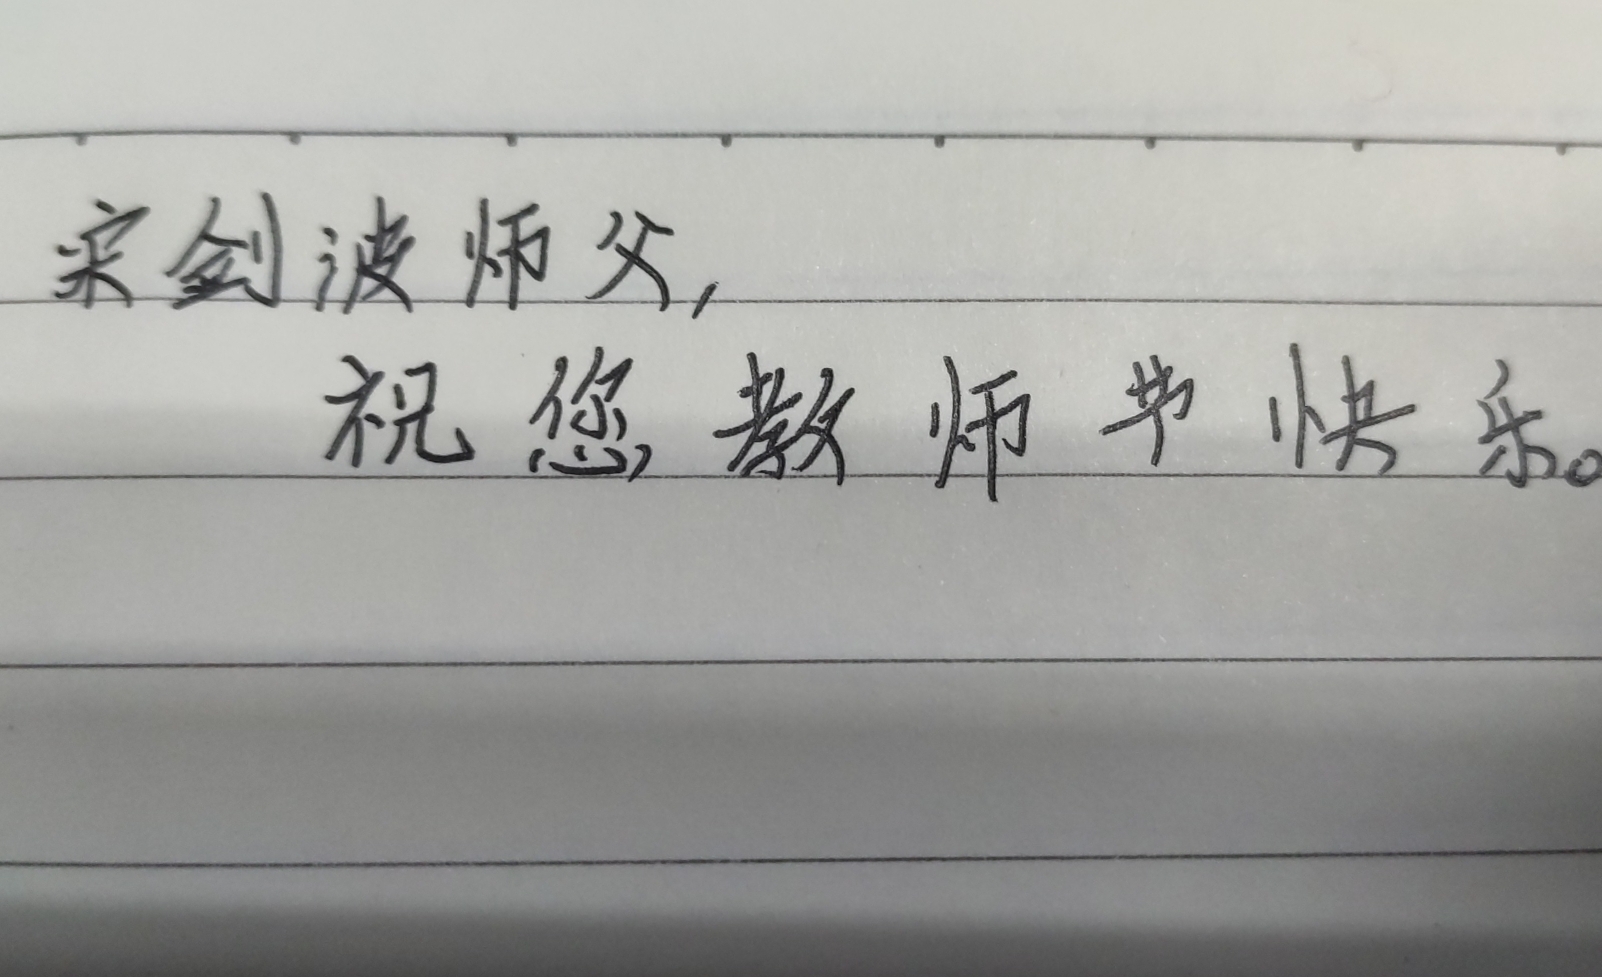 宋剑波师父，
祝您教师节快乐。